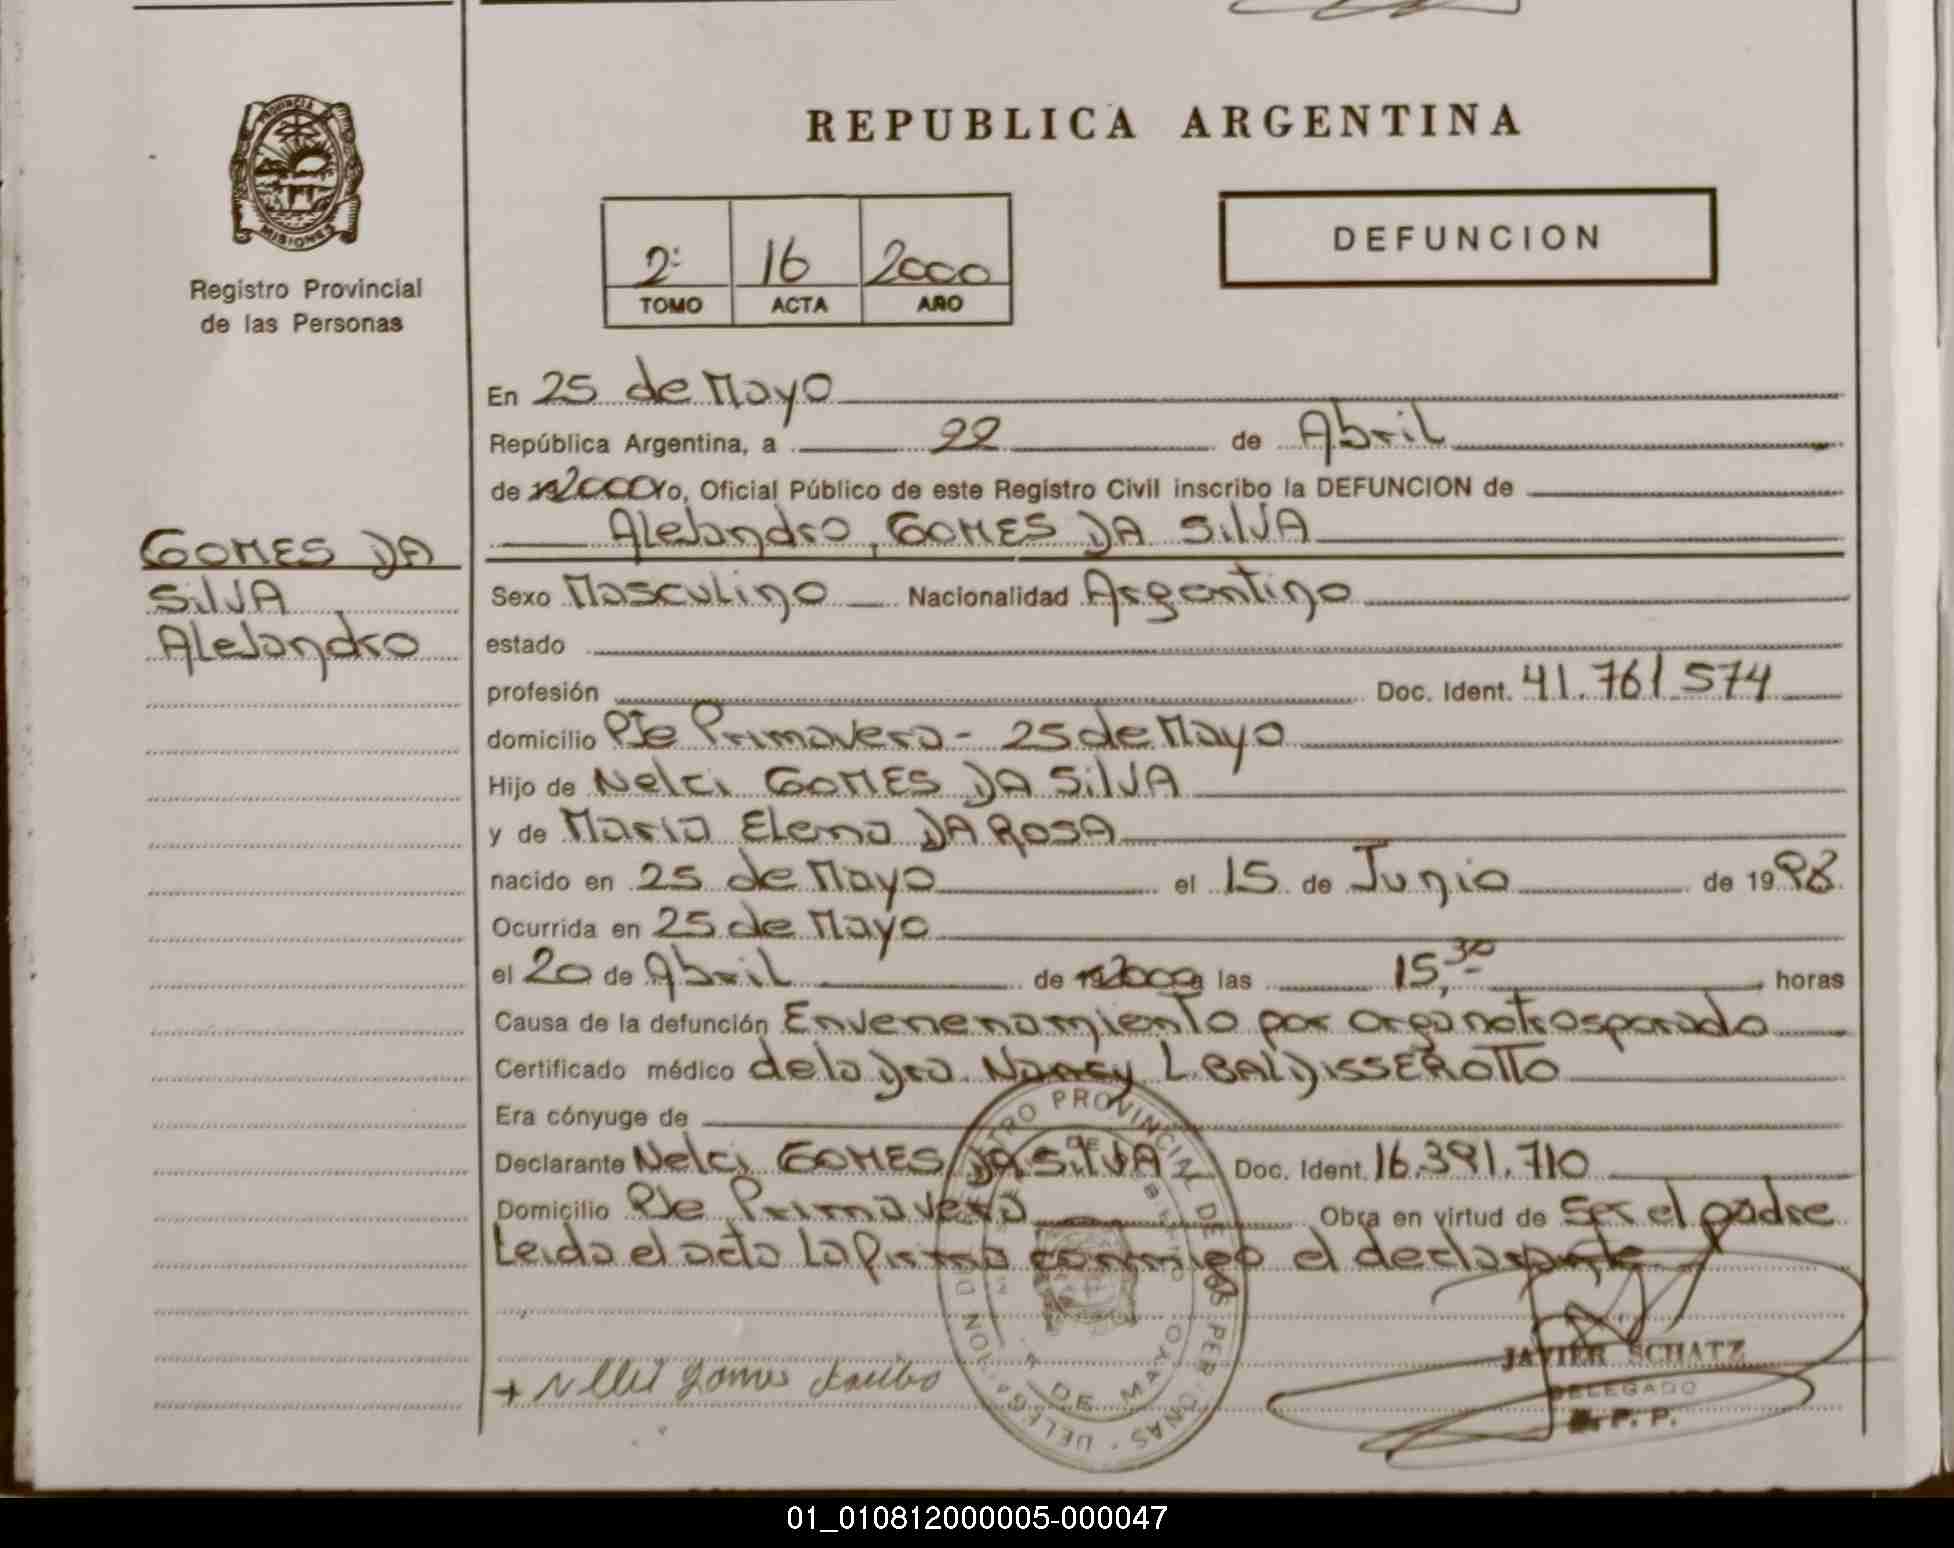 PROVINCIA
MISIONES
Registro Provincial
de las Personas
GOMES DA
SilVA
AleJandro
REPUBLICA ARGENTINA
2º 16 2000
TOMO ACTA AÑO
DEFUNCION
En 25 de Mayo
República Argentina, a 22 de Abril
de 2000 Yo, Oficial Público de este Registro Civil inscribo la DEFUNCION de
AleJandro, GOMES DA SilVA
Sexo Masculino Nacionalidad Argentino
estado
profesión Doc. Ident. 41.761 574
domicilio PJe Primavera - 25 de Mayo
Hijo de Nelci GOMES DA SilVA
y de Maria Elena DA ROSA
nacido en 25 de Mayo el 15 de Junio de 1998
Ocurrida en 25 de Mayo
el 20 de Abril de 2000 a las 15,30 horas
Causa de la defunción Envenenamiento por
Certificado médico de la Dra. Nancy L BALDISSEROTTO
Era cónyuge de
Declarante Nelci GOMES DA SilVA Doc. Ident. 16.391.710
Domicilio PJe Primavera Obra en virtud de Ser el padre
Leida el acta La firma conmigo el declarante
JAVIER SCHATZ
DELEGADO
R. P. P.
01_010812000005-000047